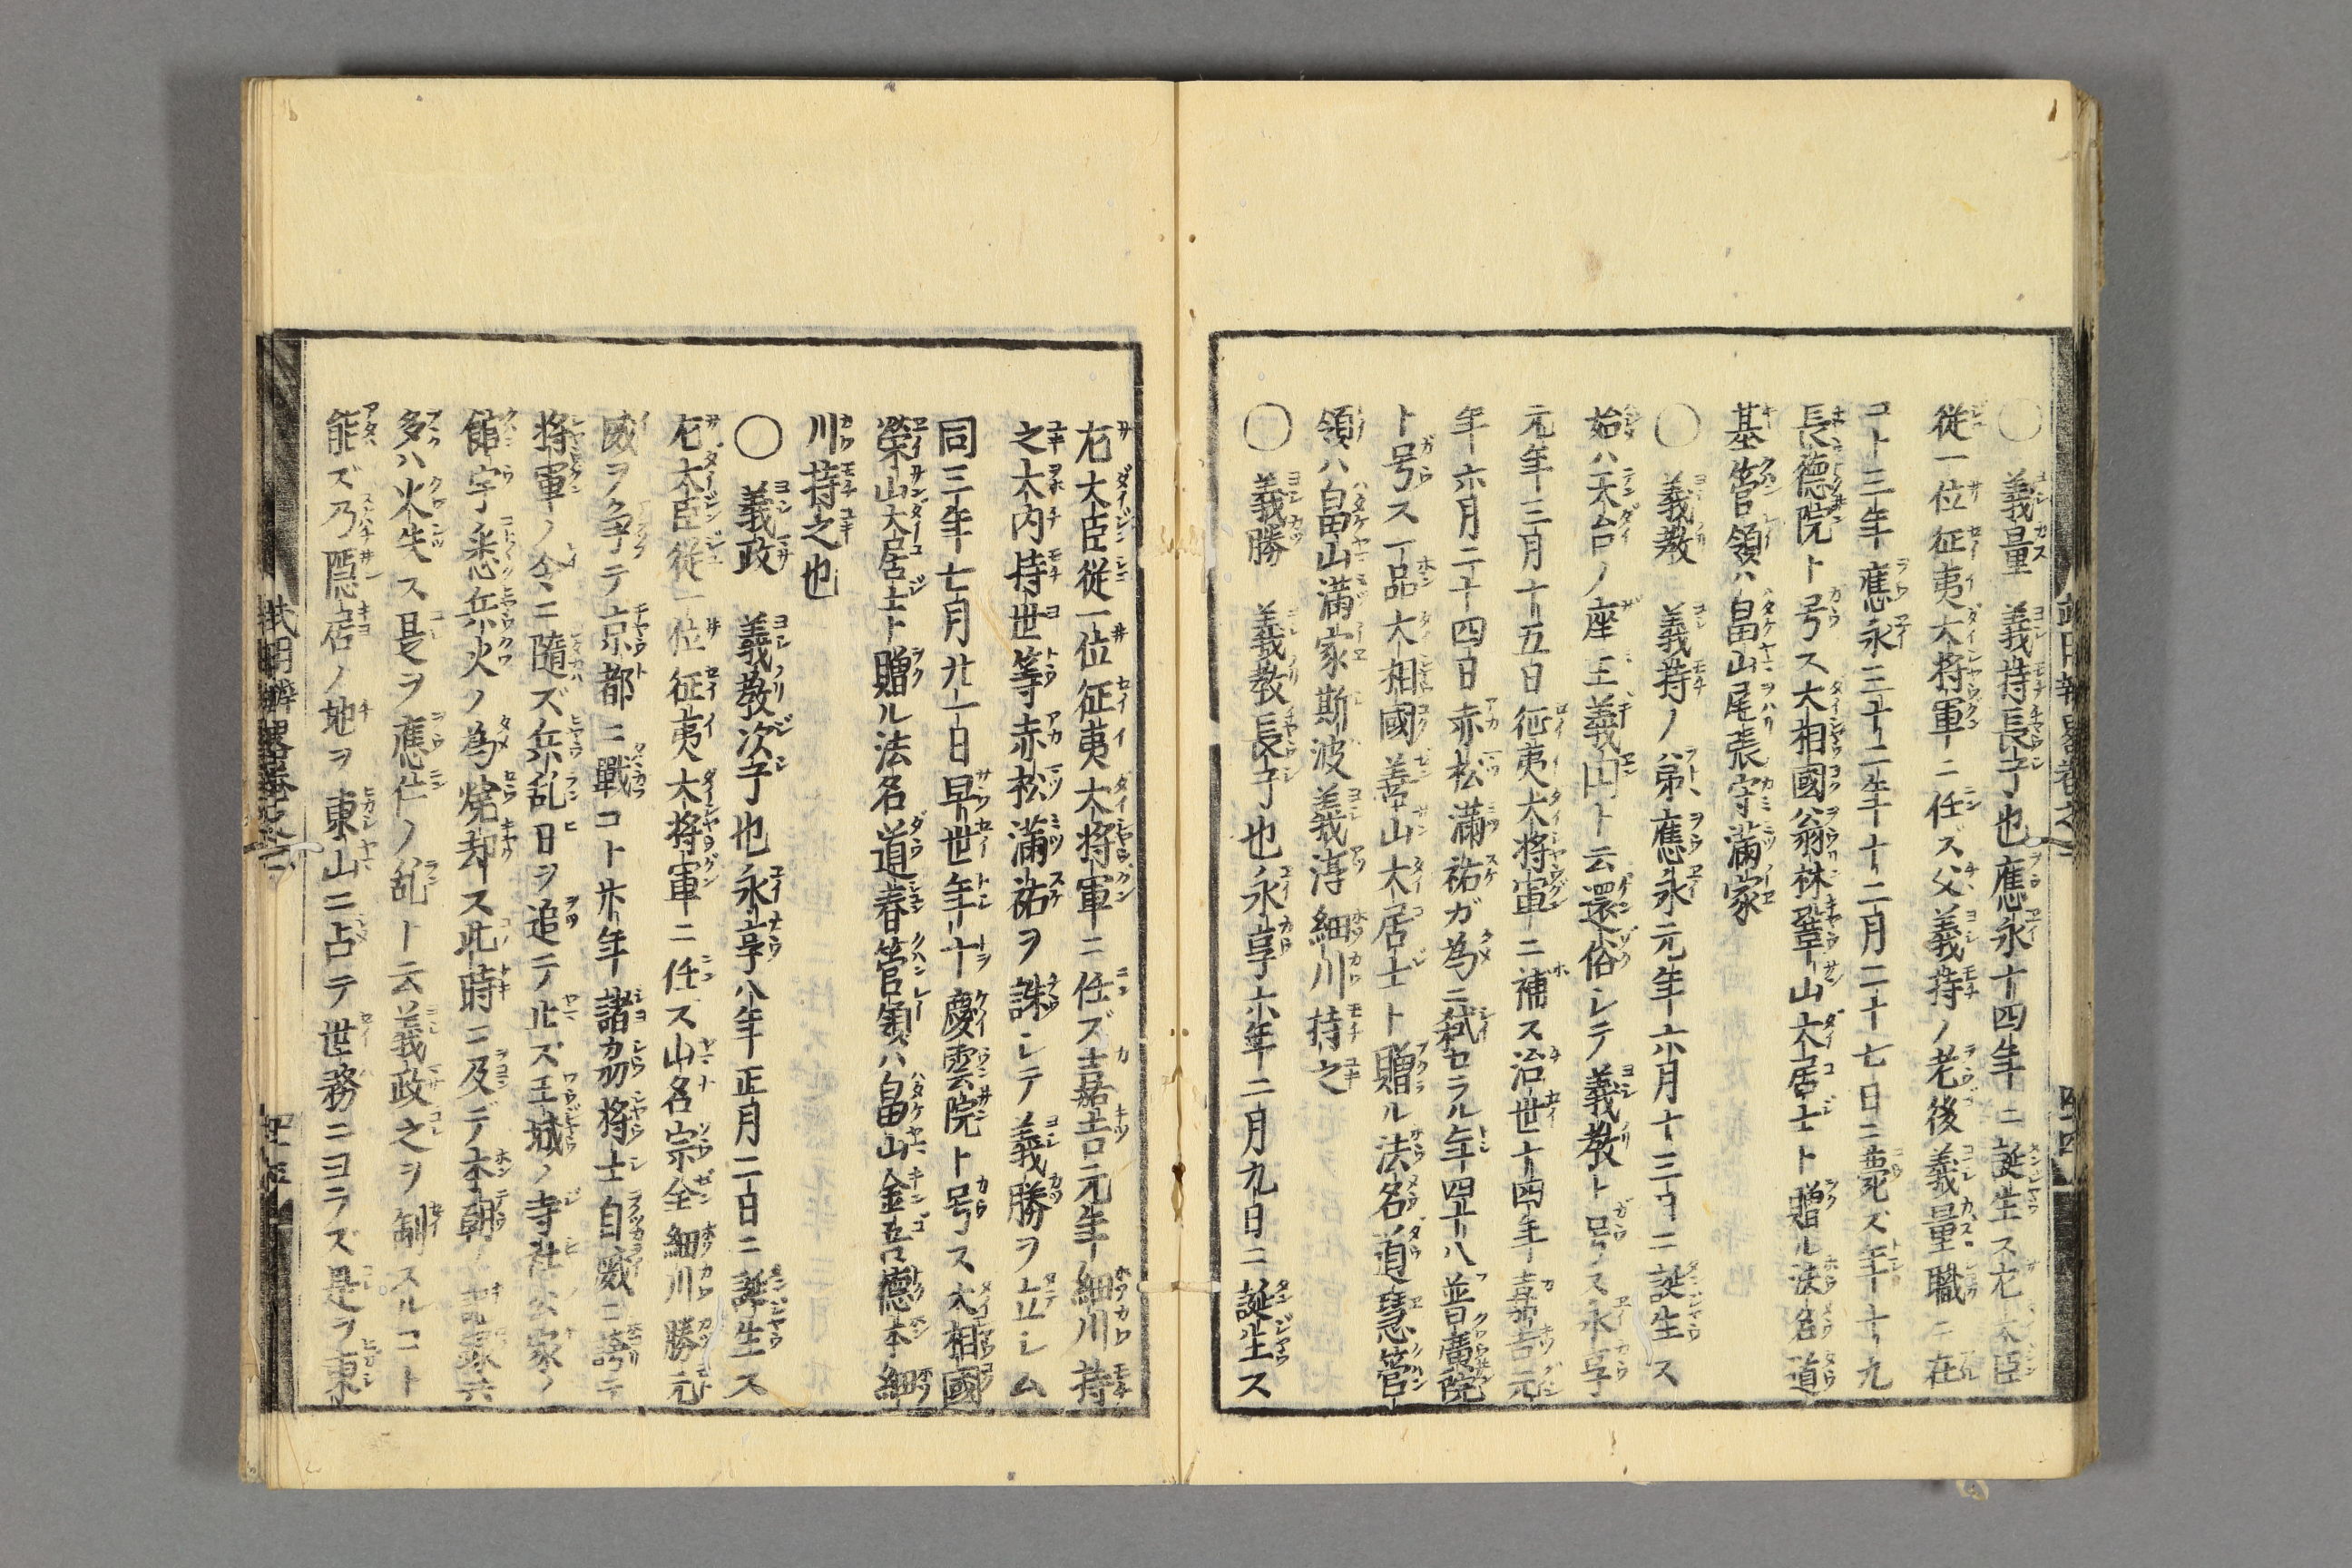 〇　義量　義持長子也應永十四年ニ誕生ス左大臣
従一位征夷大将軍ニ任ズ父義持ノ老後義量職ニ在
コト三年應永三十二年十二月二十七日ニ薨ズ年十九
長德院ト号ス大相國公翁祩鞏山大居士ト贈ル法名道
基管領ハ畠山尾張守滿家
〇　義教　義持ノ弟應永元年六月十三日ニ誕生ス
始ハ天台ノ座主義円ト云還俗シテ義教ト号ス永享
元年三月十五日征夷大将軍ニ補ス治世十四年嘉吉元
年六月二十四日赤松滿祐ガ為ニ弑セラル年四十八普廣院
ト号ス一品大相國善山大居士ト贈ル法名道慧管
領ハ畠山滿家斯波義淳細川持之
〇　義勝　義教長子也永享六年二月九日ニ誕生ス
左大臣従一位征夷大将軍ニ任ズ嘉吉元年細川持
之大内持世等赤松滿祐ヲ誅シテ義勝ヲ立シム
同三年七月廿一日早世年十慶雲院ト号ス大相國
榮山大居士ト贈ル法名道春管領ハ畠山金吾德本細
川持之也
〇　義政　義教次子也永享八年正月二日ニ誕生ス
左大臣従一位征夷大将軍ニ任ス山名宗全細川勝元
威ヲ争テ京都ニ戰コト廾年諸刕将士自威ニ誇テ
将軍ノ令ニ隨ズ兵乱日ヲ追テ止ズ王城ノ寺社公家ノ
館宇悉兵火ノ為焼却ス此時ニ及デ本朝ノ記録六
多ハ火失ス是ヲ應仁ノ乱ト云義政之ヲ制スルコト
能ズ乃隠居ノ地ヲ東山ニ占テ世務ニヨラズ是ヲ東